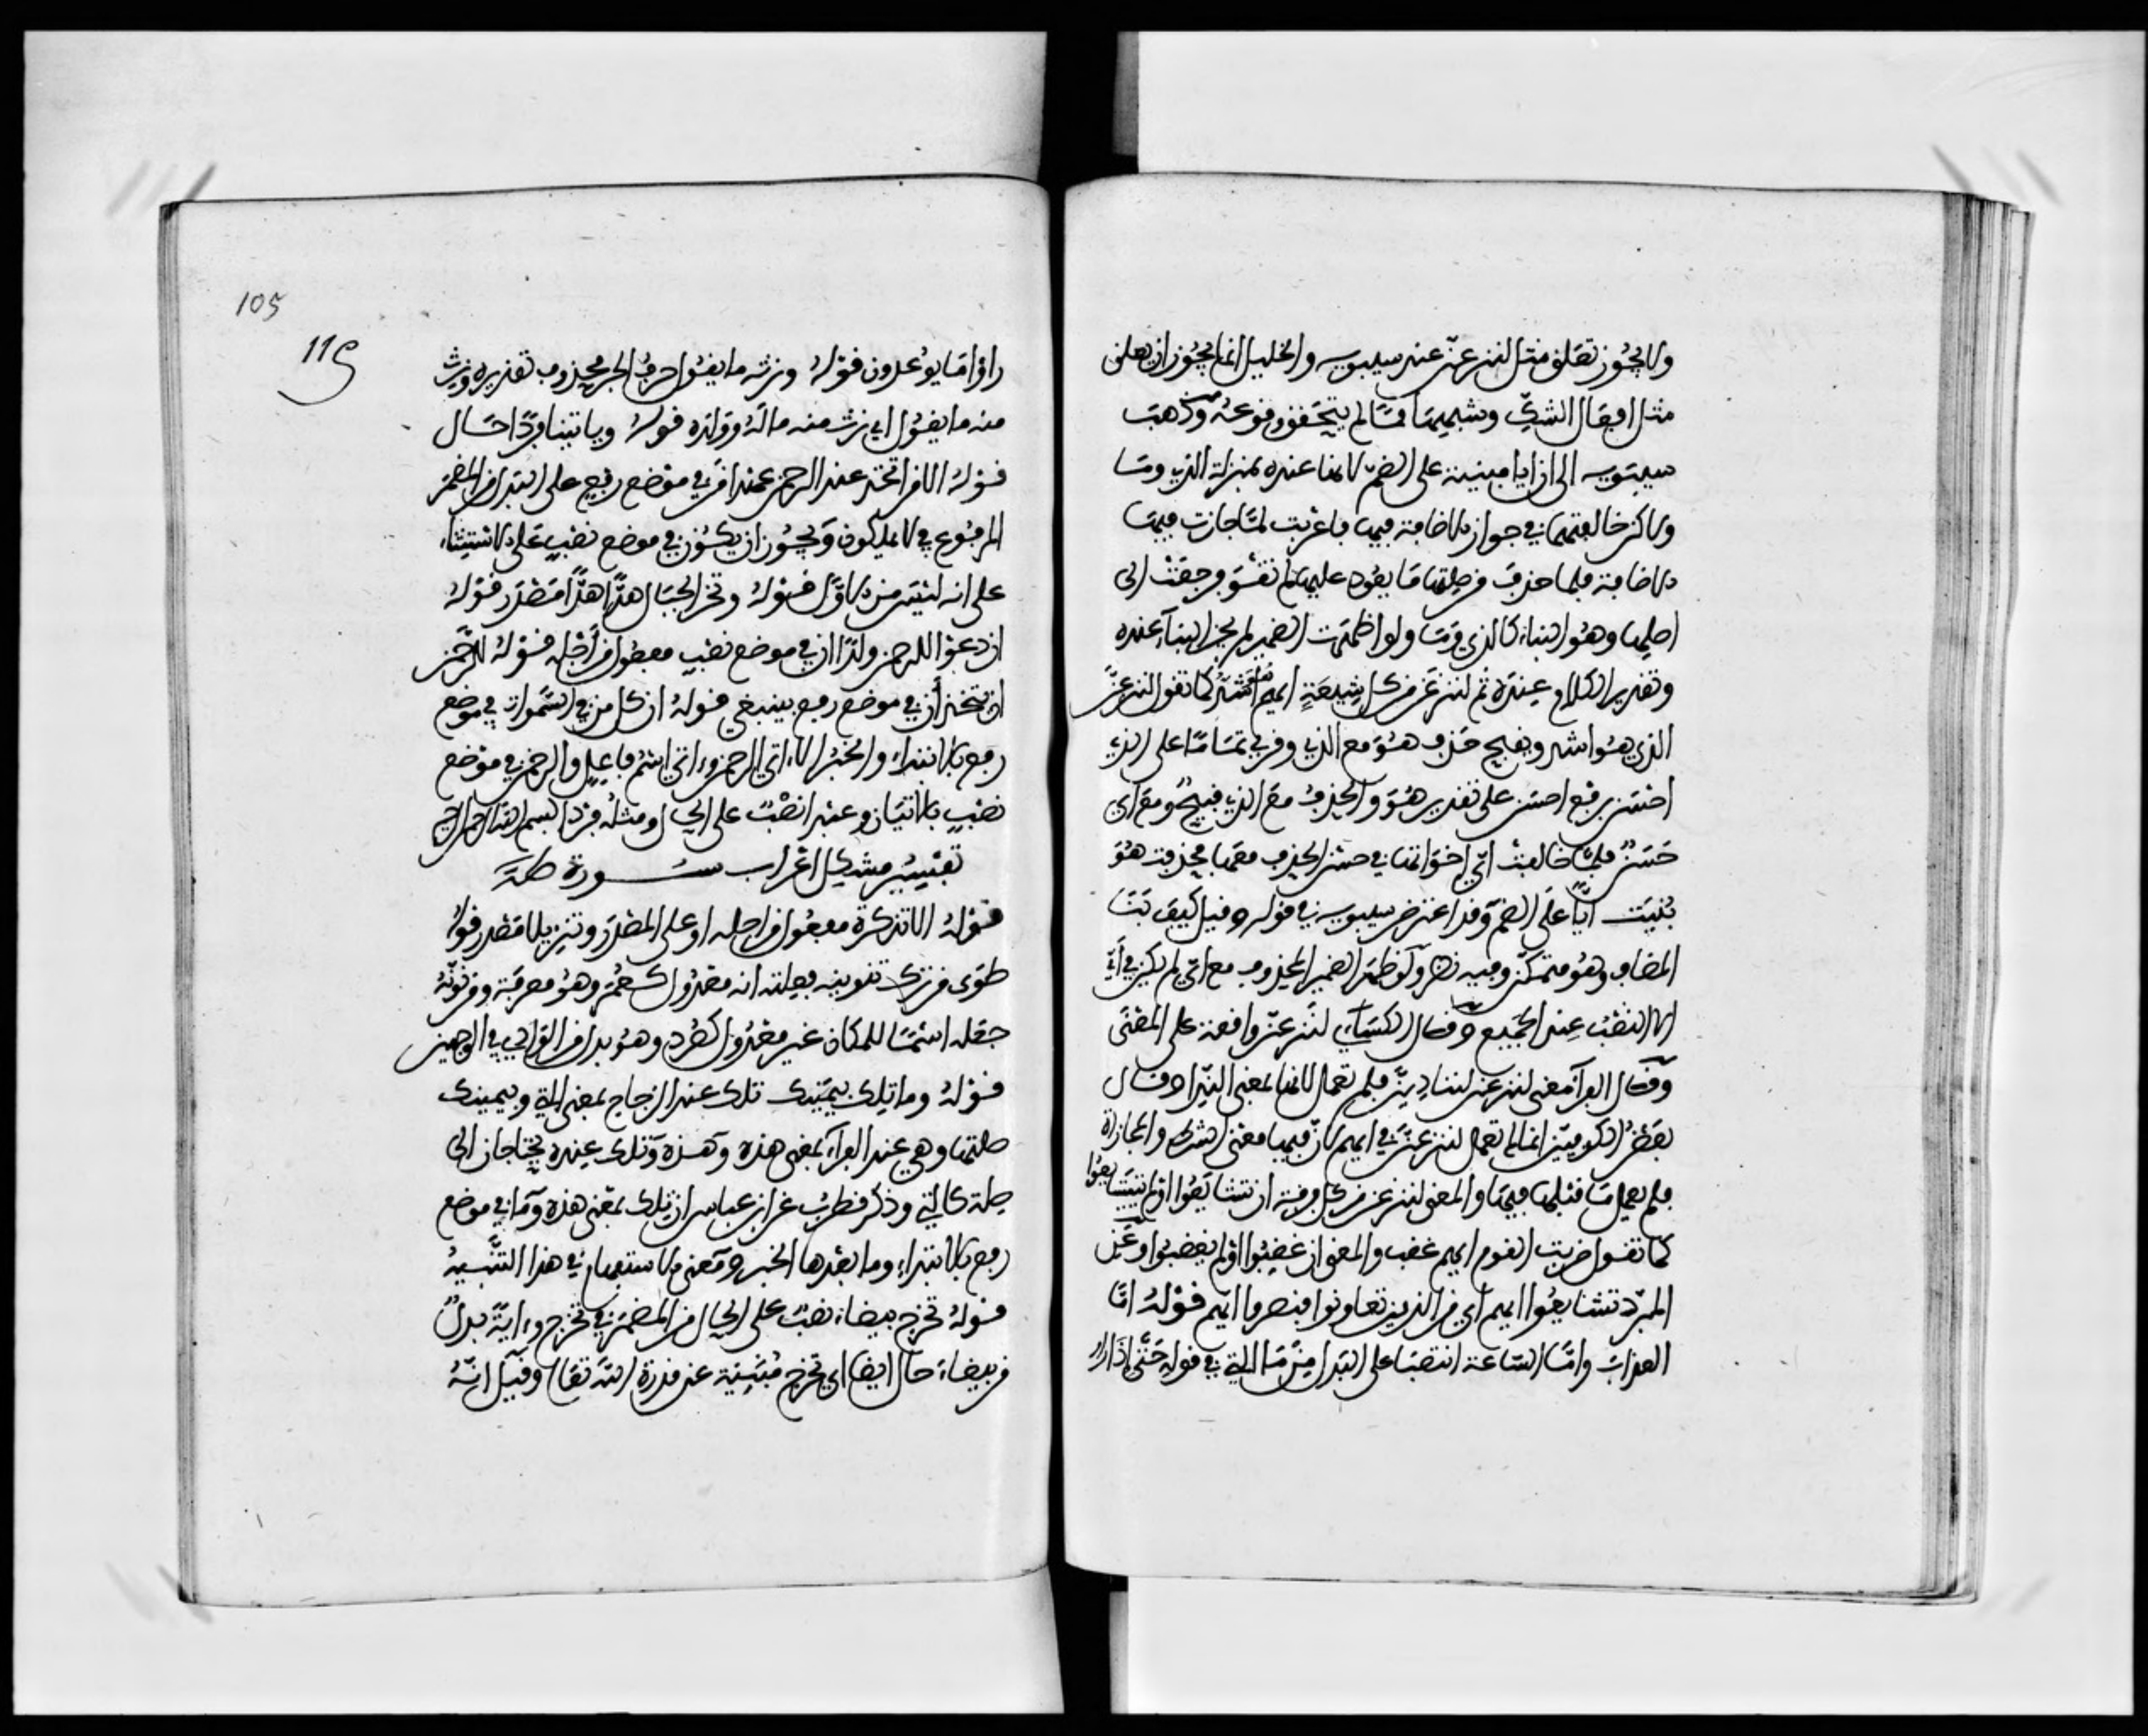 ولا يجوز تعلق مثل لننزعن عند سيبويه والخليل انما يجوز ان تعلق
مثل افعال الشك وشبهها مما لم يتحقق وقوعه وذهب
سيبويه الى ان ايا مبنية على الضم لانها عنده بمنزلة الذي وما
ولاكن خالفتهما في جواز الاضافة فيها فاعربت لما جازت فيها
الاضافة فلما حذف من صلتها ما يعود عليها لم تقو فرجعت الى
اصلها وهو البناء كالذي وما ولو اظهرت الضمير لم يجز البناء عنده
وتقدير الكلام عنده ثم لننزعن من كل شيعة ايهم هو اشد كما تقول لننزعن
الذي هو اشد ويقبح حذف هو مع الذي وقرئ تماما على الذي
احسن برفع احسن على تقدير هو والحذف مع الذي قبيح ومع اي
حسن فلما خالفت اي اخواتها في حسن الحذف معها فحذفت هو
بنيت ايا على الضم وقد اعترض سيبويه في قوله وقيل كيف تبنا
المضاف وهو متمكن وفيه نظر ولو ظهر الضمير المحذوف مع اي لم يكن في اي
الا النصب عند الجميع وقال الكسائي لننزعن واقعة على المعنى
وقال الفراء معنى لننزعن لننادين فلم تعمل لانها بمعنى النداء وقال
بعض الكوفيين انما لم تعمل لننزعن في ايهم لان فيها معنى الشرط والمجازاة
فلم يعمل ما قبلها فيها والمعنى لننزعن من كل فرقة ان تشايعوا او لم يتشايعوا
كما تقول ضربت القوم ايهم غضب والمعنى ان غضبوا او لم يغضبوا وعن
المبرد تشايعوا ايهم اي من الذين تعاونوا فنصروا ايهم قوله اما
العذاب واما الساعة انتصبا على البدل من ما التي في قوله حتى اذا راو
105
119
راوا ما يوعدون قوله ونرثه ما يقول حرف الجر محذوف تقديره ونرث
منه ما يقول اي نرث منه ماله وولده قوله وياتينا فردا حال
قوله الا من اتخذ عند الرحمن عهدا من في موضع رفع على البدل من المضمر
المرفوع في لا يملكون ويجوز ان يكون في موضع نصب على الاستثناء
على انه ليس من الاول قوله وتخر الجبال هدا هدا مصدر قوله
ان دعوا للرحمن ولدا ان في موضع نصب مفعول من اجله قوله للرحمن
ان يتخذ ان في موضع رفع بينبغي قوله ان كل من في السموات في موضع
رفع بالابتداء والخبر الا اتي الرحمن واتي اسم فاعل والرحمن في موضع
نصب بالاتيان وعبدا نصب على الحال ومثله فردا بسم الله الرحمن الرحيم
تفسير مشكل اعراب سورة طه
قوله الا تذكرة مفعول من اجله او على المصدر وتنزيلا مصدر قوله
طوى من ترك تنوينه فعلته انه معدول كعمر وهو معرفة ومن نونه
جعله اسما للمكان غير معدول كصرد وهو بدل من الوادي في الوجهين
قوله وما تلك بيمينك تلك عند الزجاج بمعنى التي وبيمينك
صلتها وهي عند الفراء بمعنى هذه وهذه وتلك عنده يحتاجان الى
صلة كالتي وذكر قطرب عن ابن عباس ان تلك بمعنى هذه وما في موضع
رفع بالابتداء وما بعدها الخبر ومعنى الاستفهام في هذا التنبيه
قوله تخرج بيضاء نصب على الحال من المضمر في تخرج واية بدل
من بيضاء حال ايضا اي تخرج مبينة عن قدرة الله تعالى وقيل انه